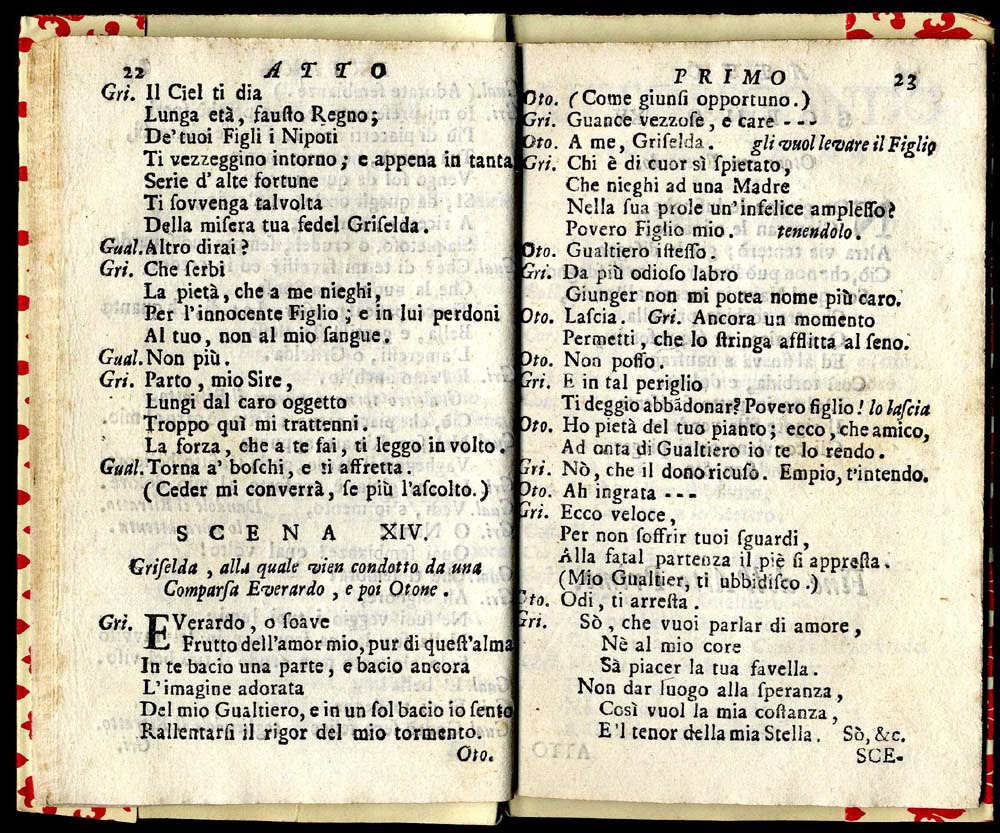 22 ATTO
Gri. Il Ciel ti dia
Lunga età, fauſto Regno;
De'tuoi Figli i Nipoti
Ti vezzeggino intorno; e appena in tanta
Serie d'alte fortune
Ti ſovvenga talvolta
Della miſera tua fedel Griſelda.
Gual. Altro dirai?
Gri. Che ſerbi
La pietà, che a me nieghi,
Per l'innocente Figlio; e in lui perdoni
Al tuo, non al mio ſangue.
Gual. Non più.
Gri. Parto, mio Sire,
Lungi dal caro oggetto
Troppo quì mi trattenni.
La forza, che a te fai, ti leggo in volto.
Gual. Torna a' boſchi, e ti affretta.
(Ceder mi converrà, ſe più l'aſcolto.)
SCENA XIV.
Griſelda, alla quale vien condotto da una
Comparſa Everardo, e poi Otone.
Gri. EVerardo, o ſoave
Frutto dell'amor mio, pur di queſt'alma
In te bacio una parte, e bacio ancora
L'imagine adorata
Del mio Gualtiero, e in un ſol bacio io ſento
Rallentarſi il rigor del mio tormento.
Oto.
PRIMO 23
Oto. (Come giunſi opportuno.)
Gri. Guance vezzoſe, e care ---
Oto. A me, Griſelda. gli vuol levare il Figlio
Gri. Chi è di cuor sì ſpietato,
Che nieghi ad una Madre
Nella ſua prole un'infelice ampleſſo?
Povero Figlio mio. tenendolo.
Oto. Gualtiero iſteſſo.
Gri. Da più odioſo labro
Giunger non mi potea nome più caro.
Oto. Laſcia. Gri. Ancora un momento
Permetti, che lo ſtringa afflitta al ſeno.
Oto. Non poſſo.
Gri. E in tal periglio
Ti deggio abbādonar? Povero figlio! lo laſcia
Oto. Ho pietà del tuo pianto; ecco, che amico,
Ad onta di Gualtiero io te lo rendo.
Gri. Nò, che il dono ricuſo. Empio, t'intendo.
Oto. Ah ingrata ---
Gri. Ecco veloce,
Per non ſoffrir tuoi ſguardi,
Alla fatal partenza il piè ſi appreſta.
(Mio Gualtier, ti ubbidiſco.)
Oto. Odi, ti arreſta.
Gri. Sò, che vuoi parlar di amore,
Nè al mio core
Sà piacer la tua favella.
Non dar luogo alla ſperanza,
Così vuol la mia coſtanza,
E'l tenor della mia Stella. Sò, &c.
SCE-